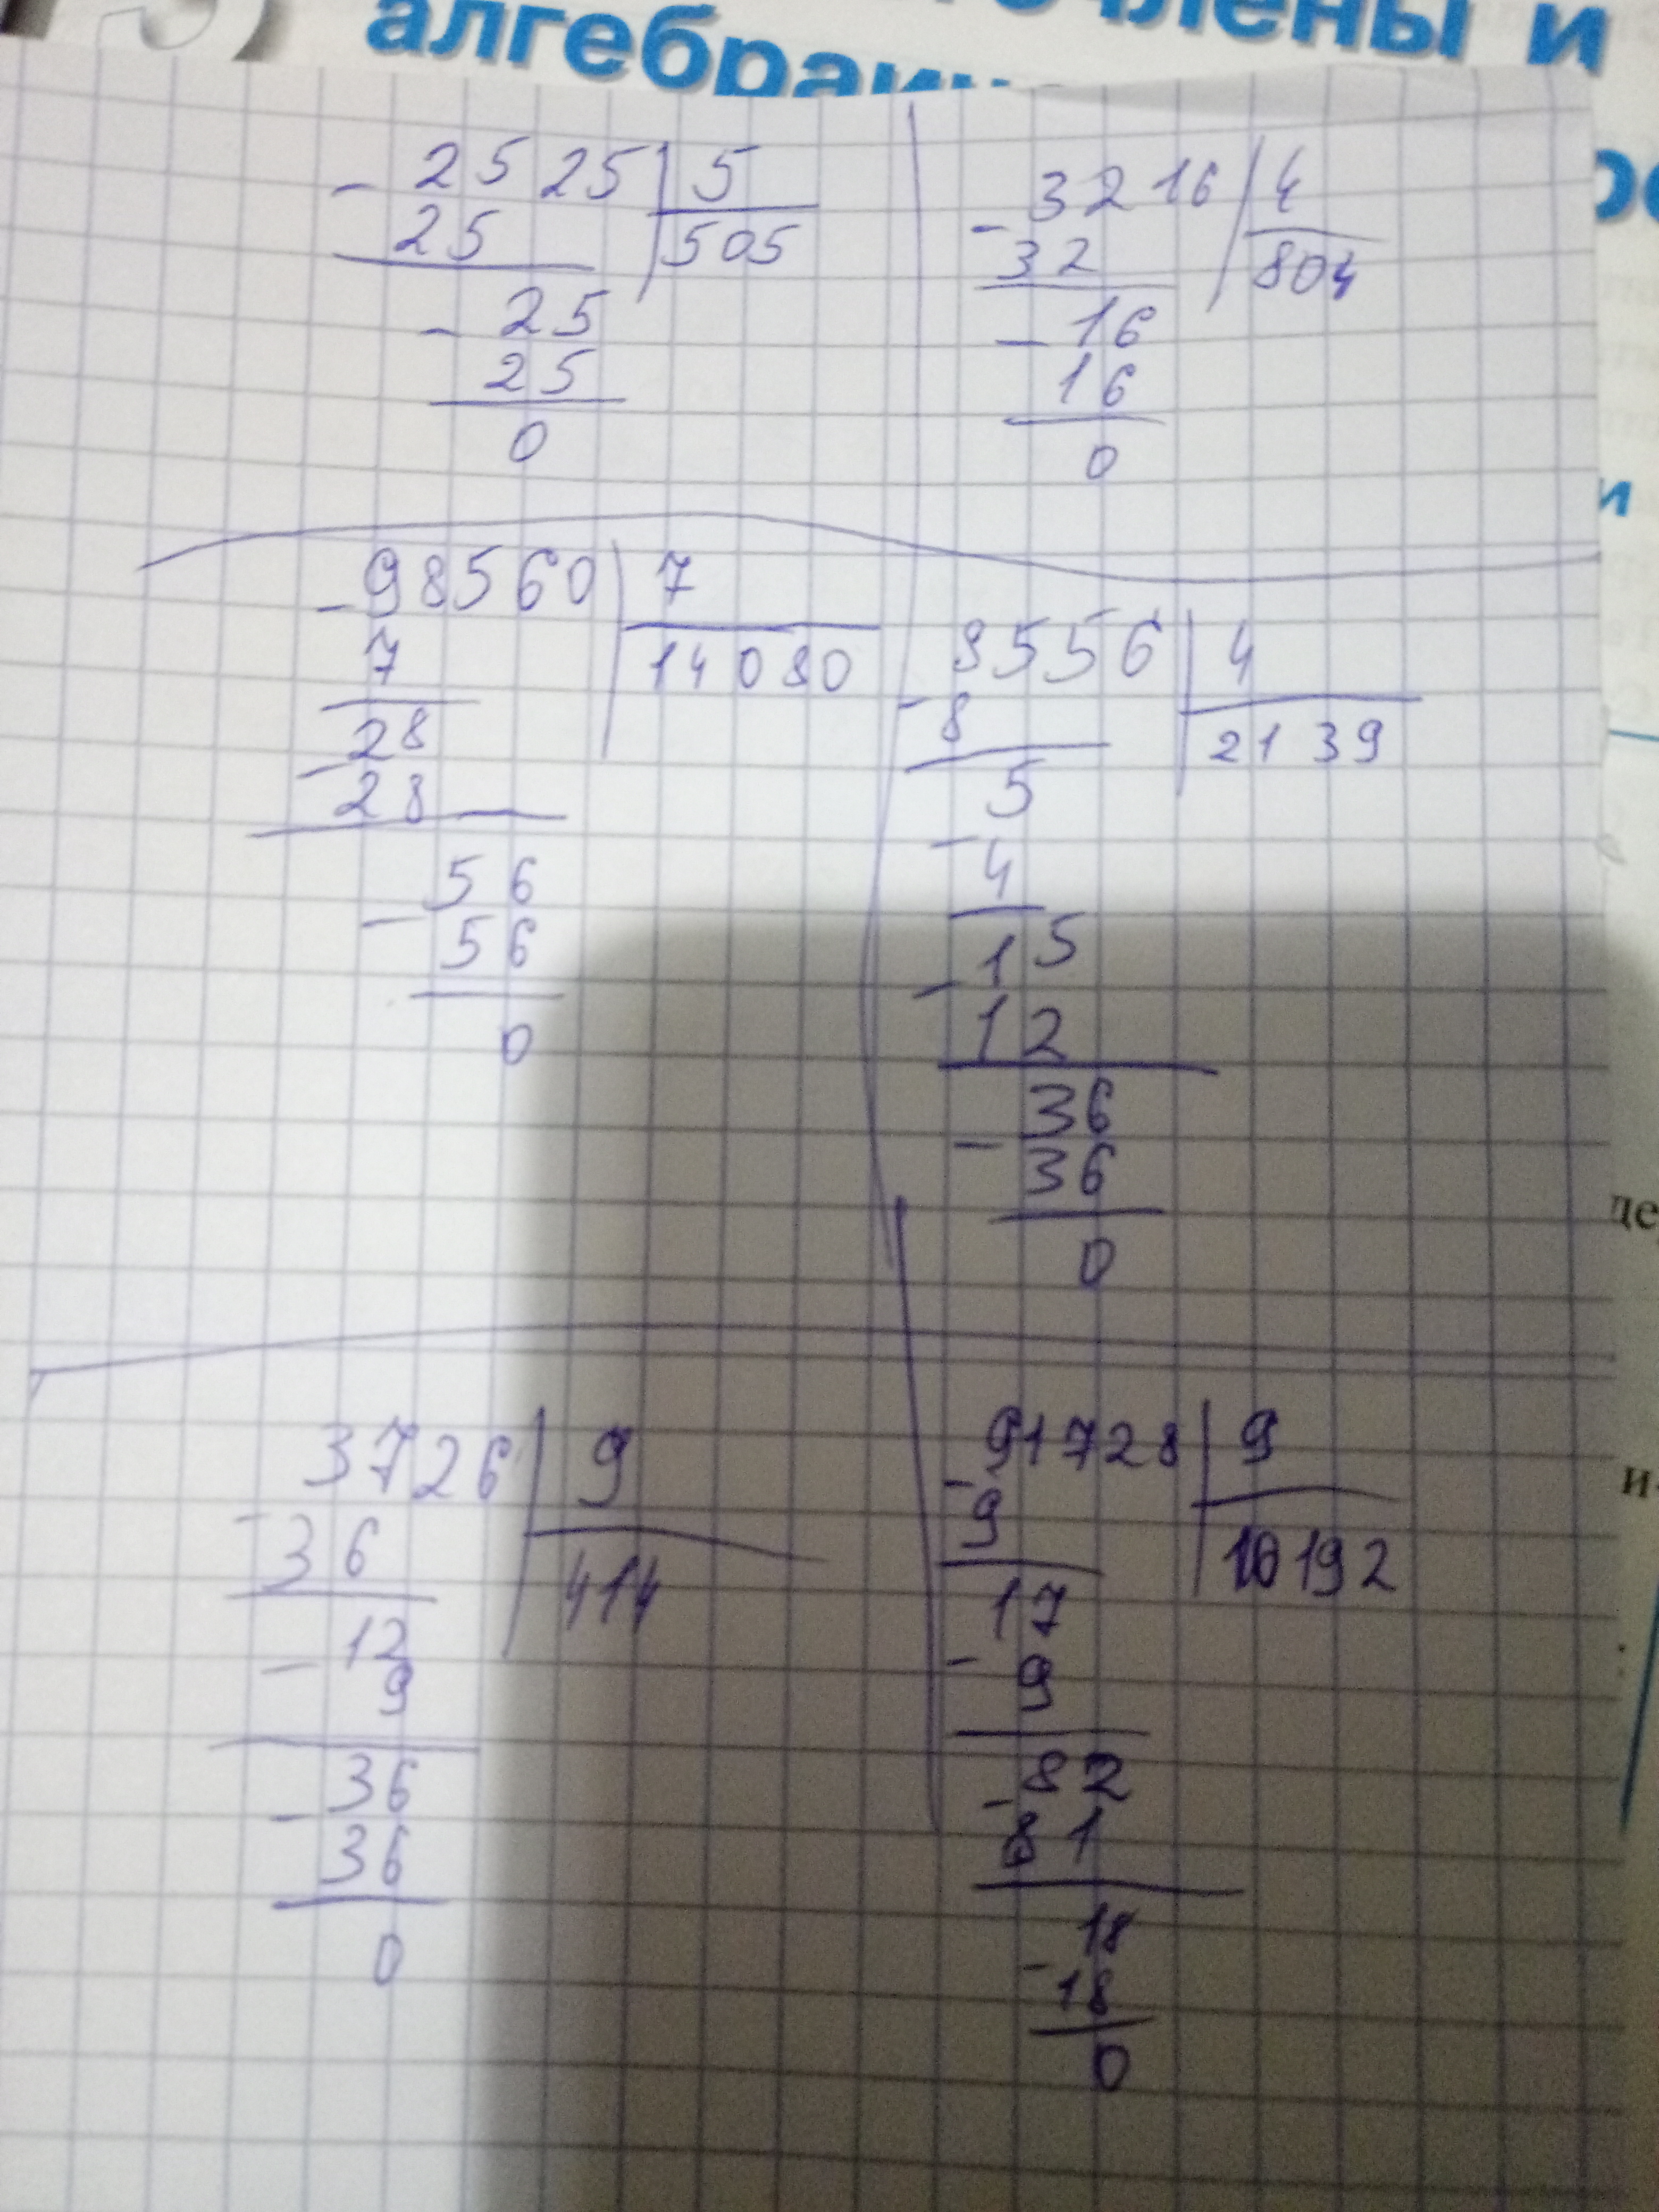 члены и
алгебраич
- 25 25 5
25 505
- 25
25
0
- 32 16 4
32 804
- 16
16
0
- 98560 7
7 14080
28
- 28
- 56
56
0
8556 4
- 8 2139
5
- 4
15
- 12
36
- 36
0
3726 9
- 36 414
- 12
9
36
- 36
0
- 91728 9
9 10192
17
- 9
82
- 81
18
- 18
0
и